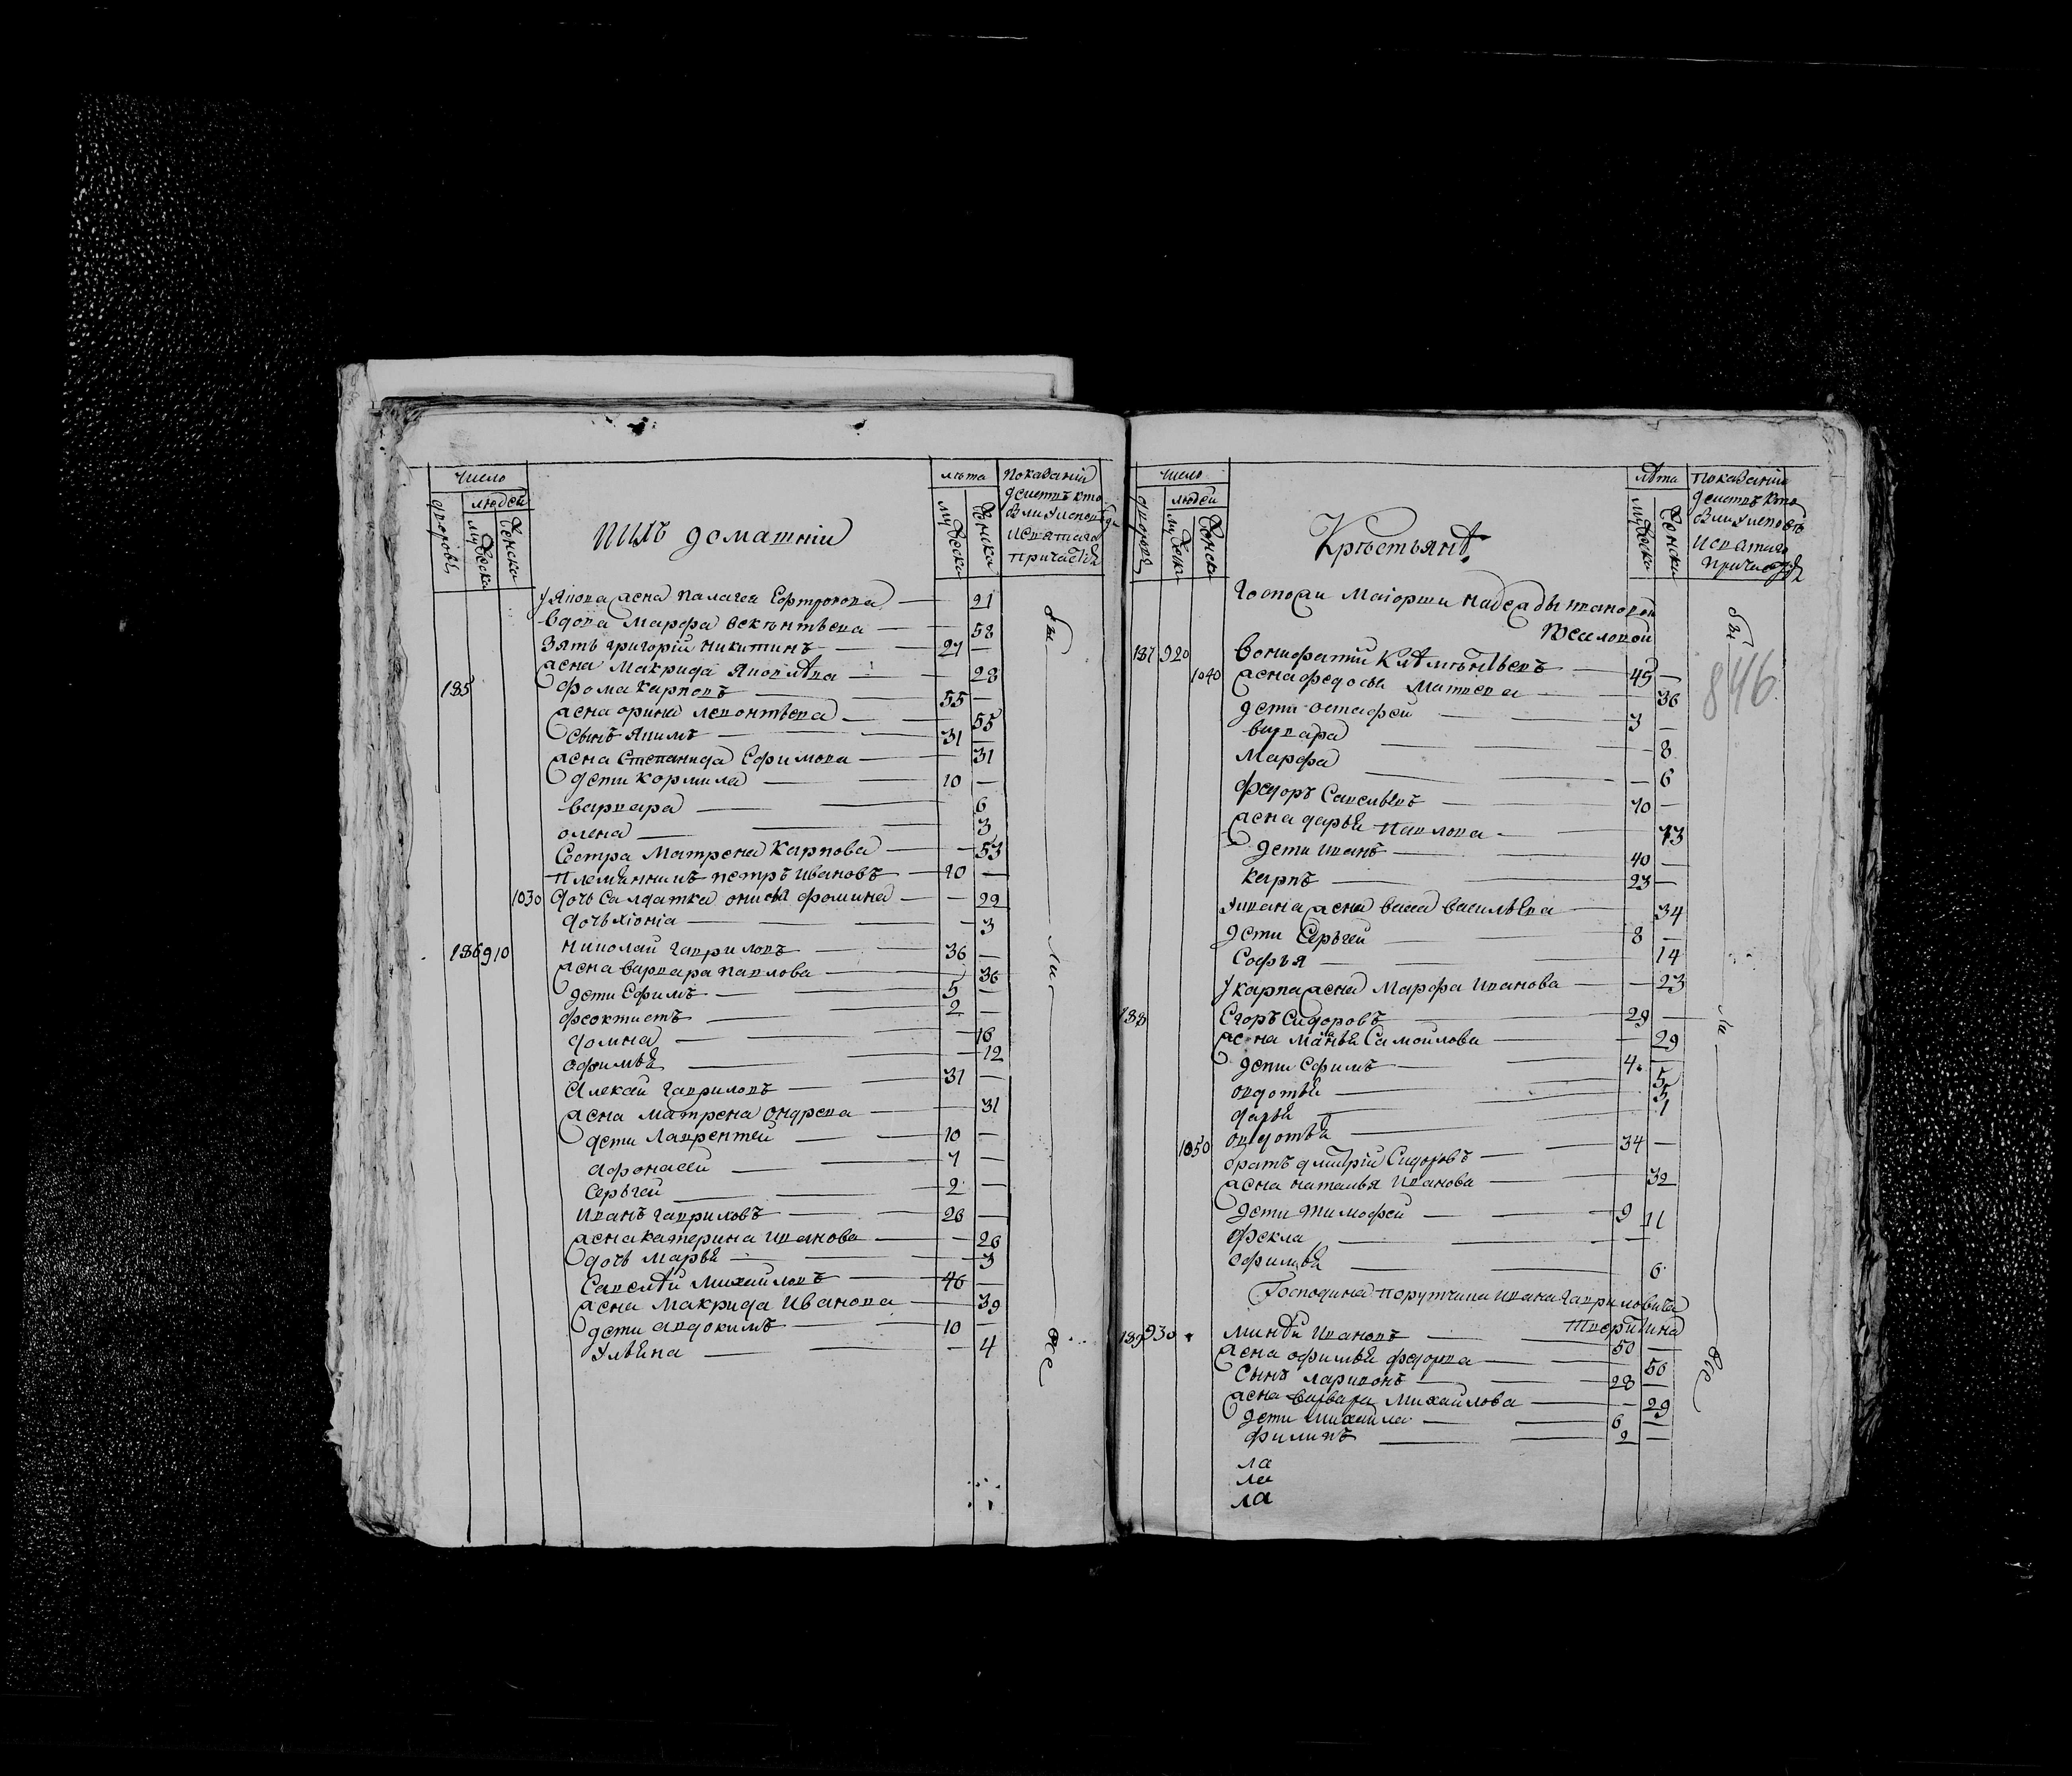 Число
людей
дворовъ
мужеска
женска
ихъ домашнии
лѣта
мужеска
женска
Показанiи
действъ кто
былъ уисповѣди
исвятаго
причастiя
уякова жена палагея
21
вдова марфа
58
зять григорiй никитинъ
27
жена макрида яковлѣва
28
185 фома карповъ
55
жена орина левонтьева
55
сынъ якимъ
31
жена степанида ефимова
31
дети кормила
10
варвара
6
олена
3
сестра матрена карпова
53
племянникъ петръ ивановъ
20
1030 дочь салдатка онисья фомина
29
дочь хiонiа
3
186 910 николай гавриловъ
36
жена варвара павлова
36
дети ефимъ
5
феоктистъ
2
домна
16
офимья
12
алексай гавриловъ
31
жена матрена ондрева
31
дети лаврентей
10
афонасей
7
серьгей
2
иванъ гавриловъ
26
жена катерина иванова
26
дочь марья
3
савелѣй михайловъ
46
жена макрида иванова
39
дети авдокимъ
10
ульяна
4
бы
ли
же
число
людей
дворовъ
мужеска
женска
Крѣстьянѣ
лѣта
мужеска
женска
показанiи
действъ кто
былъ уисповѣ
исвятаго
причастiя
846
госпожи маiорши надежды ивановой
187 920 вонифатiй
45
1040 жена федосья матвева
36
дети остафей
3
варвара
8
марфа
6
федоръ савельевъ
70
жена дарья павлова
73
дети иванъ
40
карпъ
23
уивана жена васса васильева
34
дети серьгей
8
софья
14
укарпа жена марфа иванова
23
188 егоръ сидоровъ
29
жена марья самойлова
29
дети ефимъ
4
овдотья
5
дарья
3
1050 овдотья
1
братъ дмитрiй сидоровъ
34
жена наталья иванова
32
дети тимофей
9
фекла
11
ефимья
6
Господина порутчика ивана гавриловича
189 930 минѣй ивановъ
50
жена офимья федорова
50
сынъ ларивонъ
28
жена варвара михайлова
29
дети михайла
6
филипъ
2
ла
ла
ла
бы
ли
же